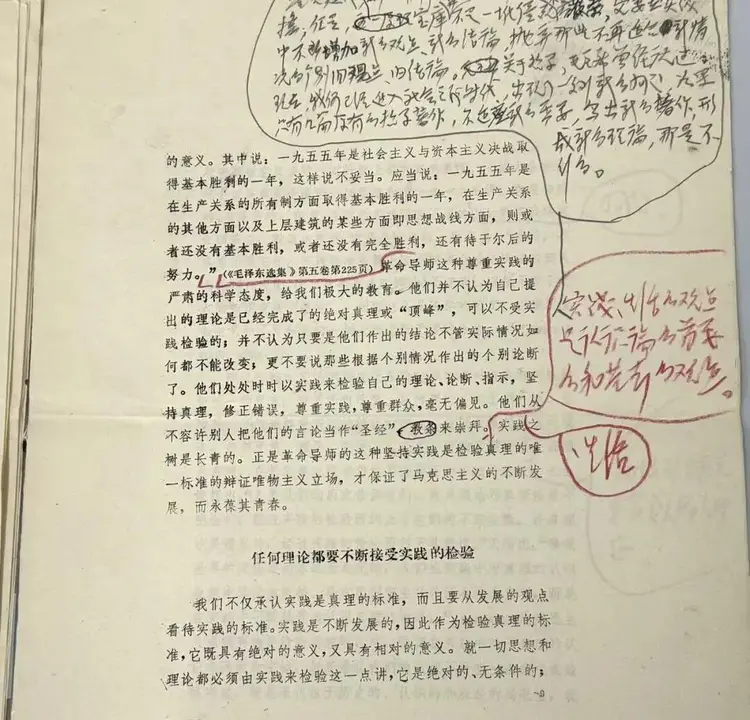 中不断增加新的观点、新的结论，抛弃那些不再适合新情
况的个别旧观点、旧结论。
的意义。其中说：一九五五年是社会主义与资本主义决战取
得基本胜利的一年，这样说不妥当。应当说：一九五五年是
在生产关系的所有制方面取得基本胜利的一年，在生产关系
的其他方面以及上层建筑的某些方面即思想战线方面，则或
者还没有基本胜利，或者还没有完全胜利，还有待于尔后的
努力。”（《毛泽东选集》第五卷第225页）革命导师这种尊重实践的
严肃的科学态度，给我们极大的教育。他们并不认为自己提
出的理论是已经完成了的绝对真理或“顶峰”，可以不受实
践检验的；并不认为只要是他们作出的结论不管实际情况如
何都不能改变；更不要说那些根据个别情况作出的个别论断
了。他们处处时时以实践来检验自己的理论、论断、指示，坚
持真理，修正错误，尊重实践，尊重群众，毫无偏见。他们从
不容许别人把他们的言论当作“圣经”来崇拜。实践之
树是长青的。正是革命导师的这种坚持实践是检验真理的唯
一标准的辩证唯物主义立场，才保证了马克思主义的不断发
展，而永葆其青春。
实践、生活的观点
是认识论的首要
的和基本的观点。
生活
任何理论都要不断接受实践的检验
我们不仅承认实践是真理的标准，而且要从发展的观点
看待实践的标准。实践是不断发展的，因此作为检验真理的标
准，它既具有绝对的意义，又具有相对的意义。就一切思想和
理论都必须由实践来检验这一点讲，它是绝对的、无条件的；